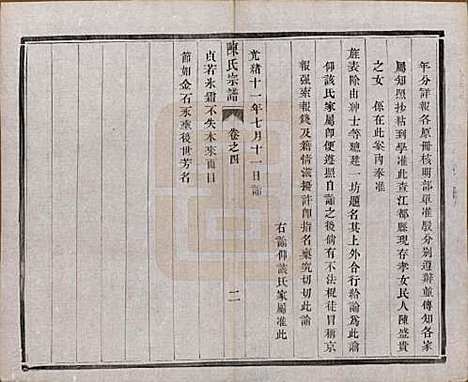 年分詳報各原冊核明部單准駁分別遵辦並傳知各家
屬知照抄粘到學准此查江都縣現存孝女民人陳盛貴
之女 係在此案內奉准
旌表除由紳士等總建一坊題名其上外合行給諭為此諭
仰該氏家屬即便遵照自諭之後倘有不法棍徒冒稱京
報强索報錢及藉情滋擾許即指名稟究切切此諭
右諭仰該氏家屬准此
光緒十一年七月十一日諭
陳氏宗譜
卷之四
二
貞若氷霜不失本來面目
節如金石永垂後世芳名